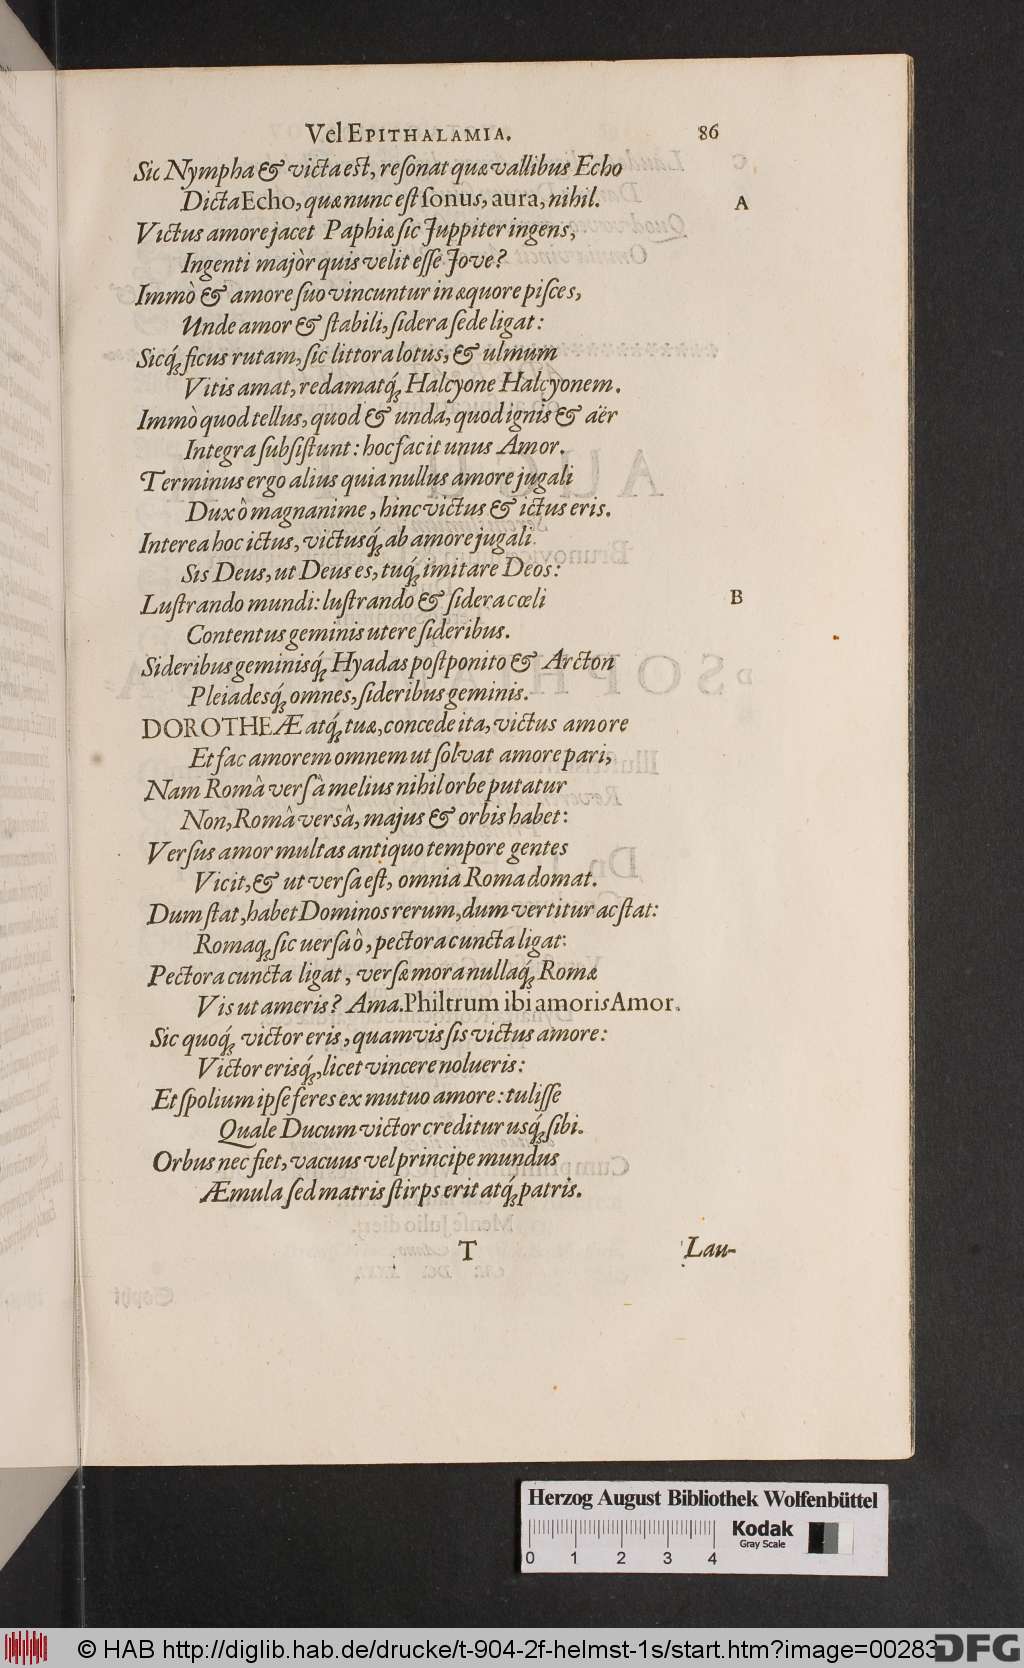 Vel EPITHALAMIA. 86
Sic Nympha & victa est, resonat quæ vallibus Echo
Dicta Echo, quæ nunc est sonus, aura, nihil. A
Victus amore jacet Paphiæ sic Juppiter ingens,
Ingenti majòr quis velit esse Jove?
Immò & amore suo vincuntur in æquore pisces,
Unde amor & stabili, sidera sede ligat:
Sicq́; ficus rutam, sic littora lotus, & ulmum
Vitis amat, redamatq́; Halcyone Halcyonem.
Immò quod tellus, quod & unda, quod ignis & aër
Integra subsistunt: hoc facit unus Amor.
Terminus ergo alius quia nullus amore jugali
Dux ô magnanime, hinc victus & ictus eris.
Interea hoc ictus, victusq́; ab amore jugali
Sis Deus, ut Deus es, tuq́; imitare Deos:
Lustrando mundi: lustrando & sidera cœli B
Contentus geminis utere sideribus.
Sideribus geminisq́; Hyadas postponito & Arcton
Pleiadesq́; omnes, sideribus geminis.
DOROTHEÆ atq́; tuæ, concede ita, victus amore
Et fac amorem omnem ut solvat amore pari,
Nam Româ versâ melius nihil orbe putatur
Non, Româ versâ, majus & orbis habet:
Versus amor multas antiquo tempore gentes
Vicit, & ut versa est, omnia Roma domat.
Dum stat, habet Dominos rerum, dum vertitur ac stat:
Romaq; sic uersa ô, pectora cuncta ligat:
Pectora cuncta ligat, versæ mora nullaq́; Romæ
Vis ut ameris? Ama. Philtrum ibi amoris Amor.
Sic quoq́; victor eris, quamvis sis victus amore:
Victor erisq́;, licet vincere nolueris:
Et spolium ipse feres ex mutuo amore: tulisse
Quale Ducum victor creditur usq́; sibi.
Orbus nec fiet, vacuus vel principe mundus
Æmula sed matris stirps erit atq́; patris.
T Lau-
Herzog August Bibliothek Wolfenbüttel
Kodak
Gray Scale
0 1 2 3 4
© HAB http://diglib.hab.de/drucke/t-904-2f-helmst-1s/start.htm?image=00283
DFG